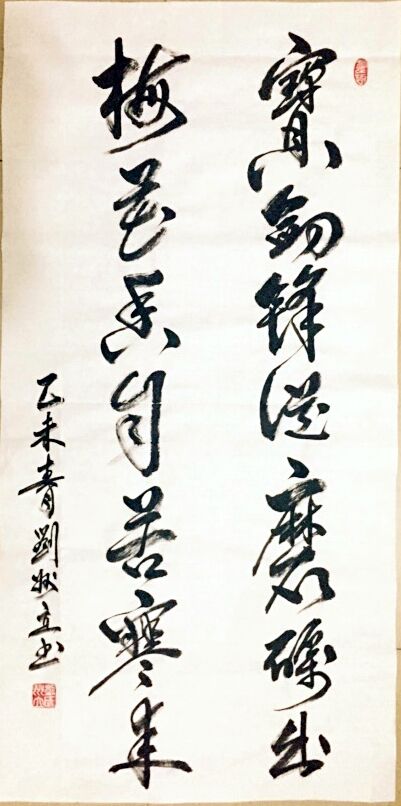 寶劍鋒從磨礪出
梅花香自苦寒来
乙未春劉立书